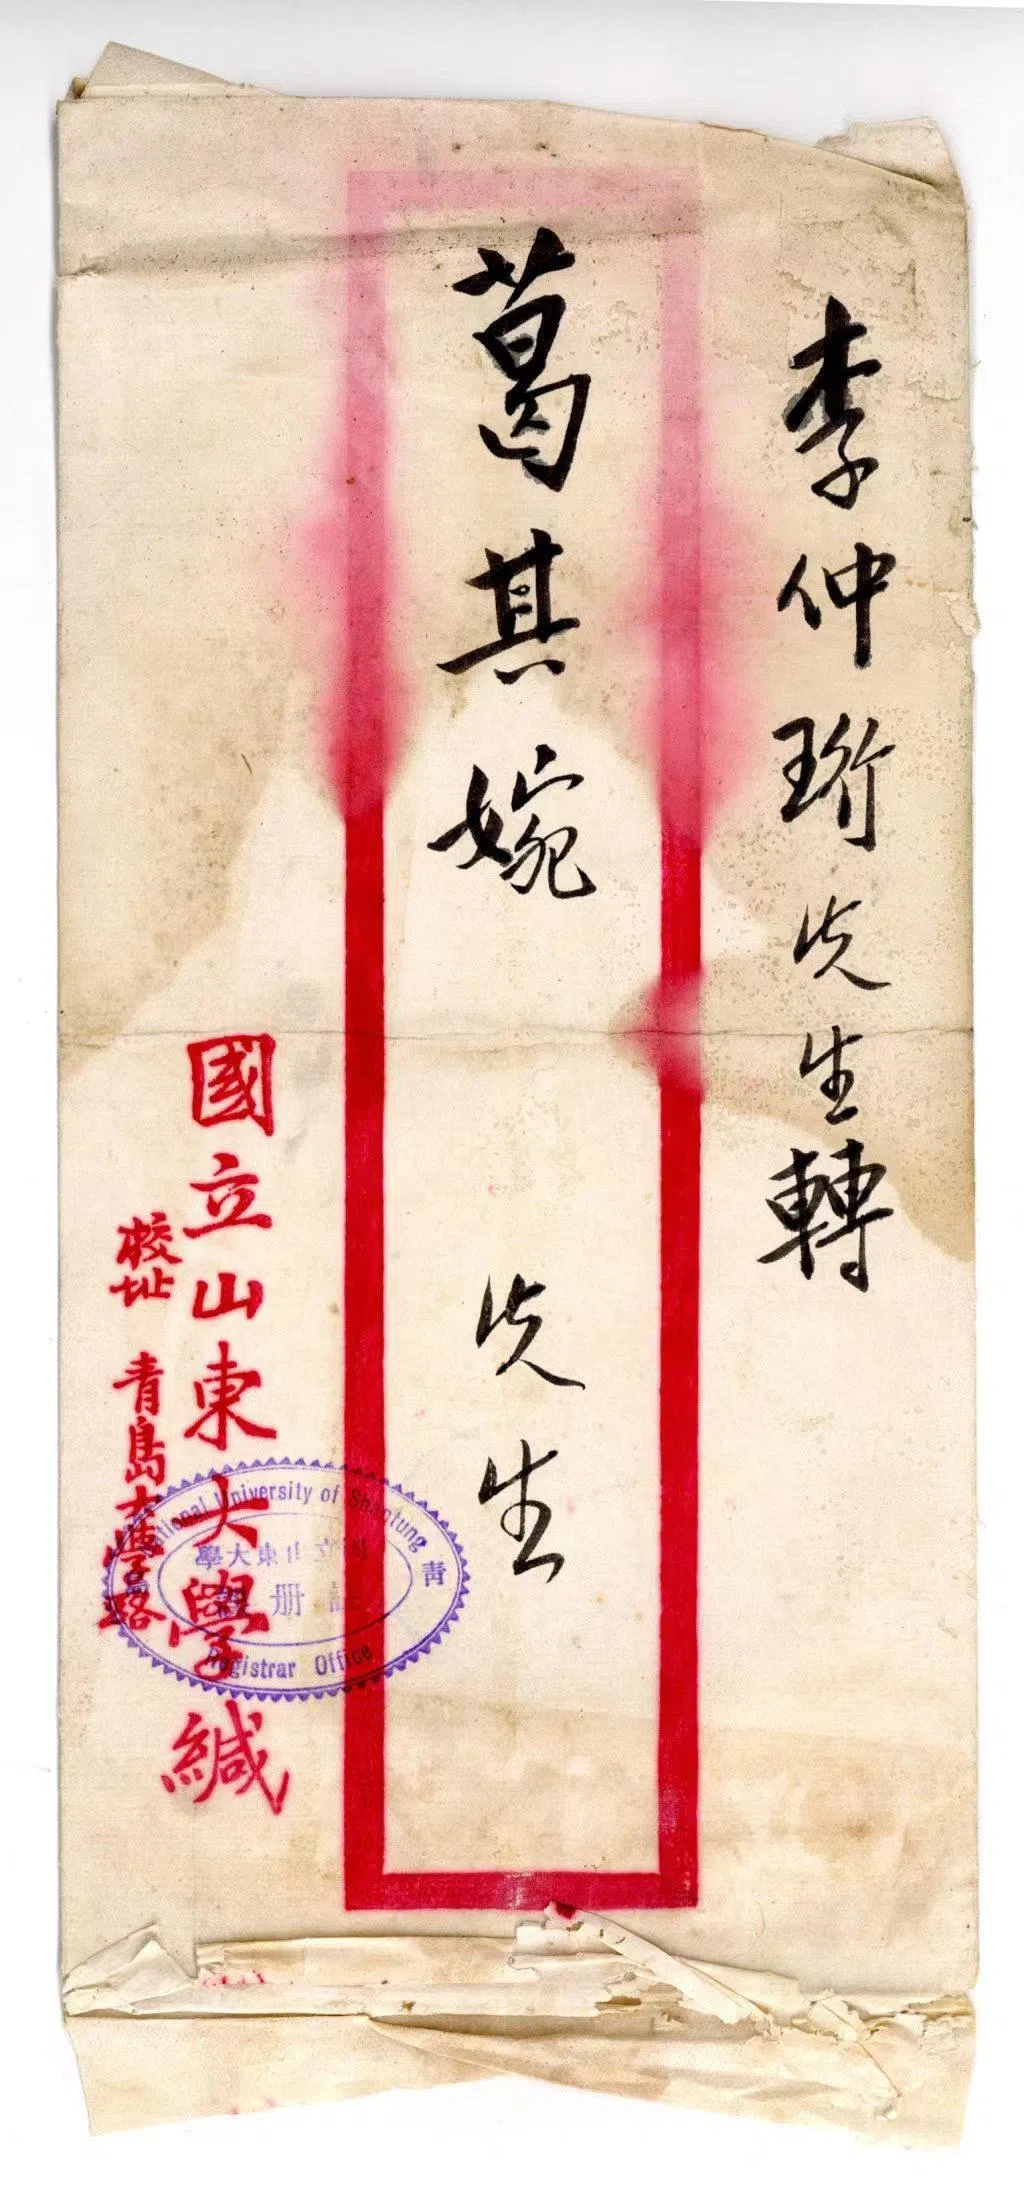 李仲珩先生轉
葛其婉 先生
國立山東大學緘
校址 青島大學路
National University of Shantung
國立山東大學
青
註册
Registrar Office